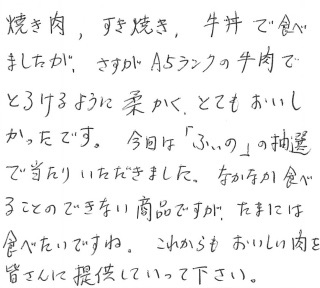 焼き肉, すき焼き, 牛丼で食べ
ましたが, さすがA5ランクの牛肉で
とろけるように柔かく, とてもおいし
かったです。今回は「ふぃの」の抽選
で当たりいただきました。なかなか食べ
ることのできない商品ですが, たまには
食べたいですね。これからもおいしい肉を
皆さんに提供していって下さい。